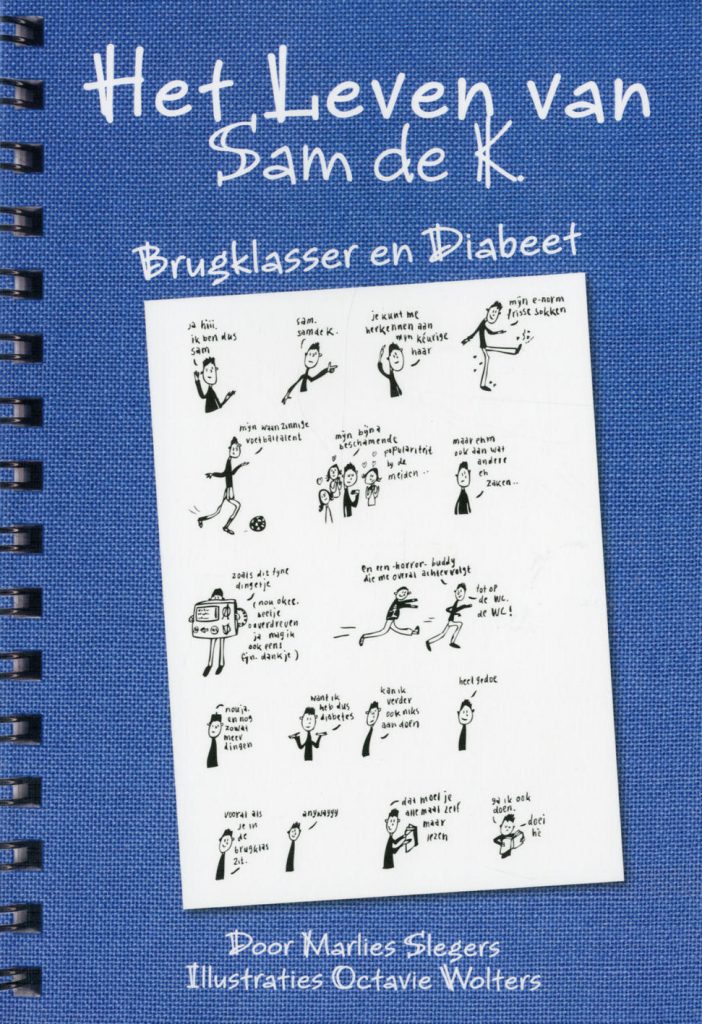 Het Leven van
Sam de K.
Brugklasser en Diabeet
ja hiii.
ik ben dus
sam
sam.
sam de K.
je kunt me
herkennen aan
mijn keurige
haar
mijn e-norm
frisse sokken
mijn waanzinnige
voetbaltalent
mijn bijna
beschamende
populariteit
bij de
meiden..
maar ehm
ook aan wat
andere
eh
zaken..
zoals dit fijne
dingetje
(nou okee.
beetje
overdreven
ja mag ik
ook eens
fijn. dankje)
en een -horror- buddy
die me overal achtervolgt
tot op
de WC.
de WC!
nou ja.
en nog
zowat
meer
dingen
want ik
heb dus
diabetes
kan ik
verder
ook niks
aan doen
heel gedoe
vooral als
je in
de
brugklas
zit.
anywayyy
dat moet je
allemaal zelf
maar
lezen
ga ik ook
doen.
doei
hè
Door Marlies Slegers
Illustraties Octavie Wolters